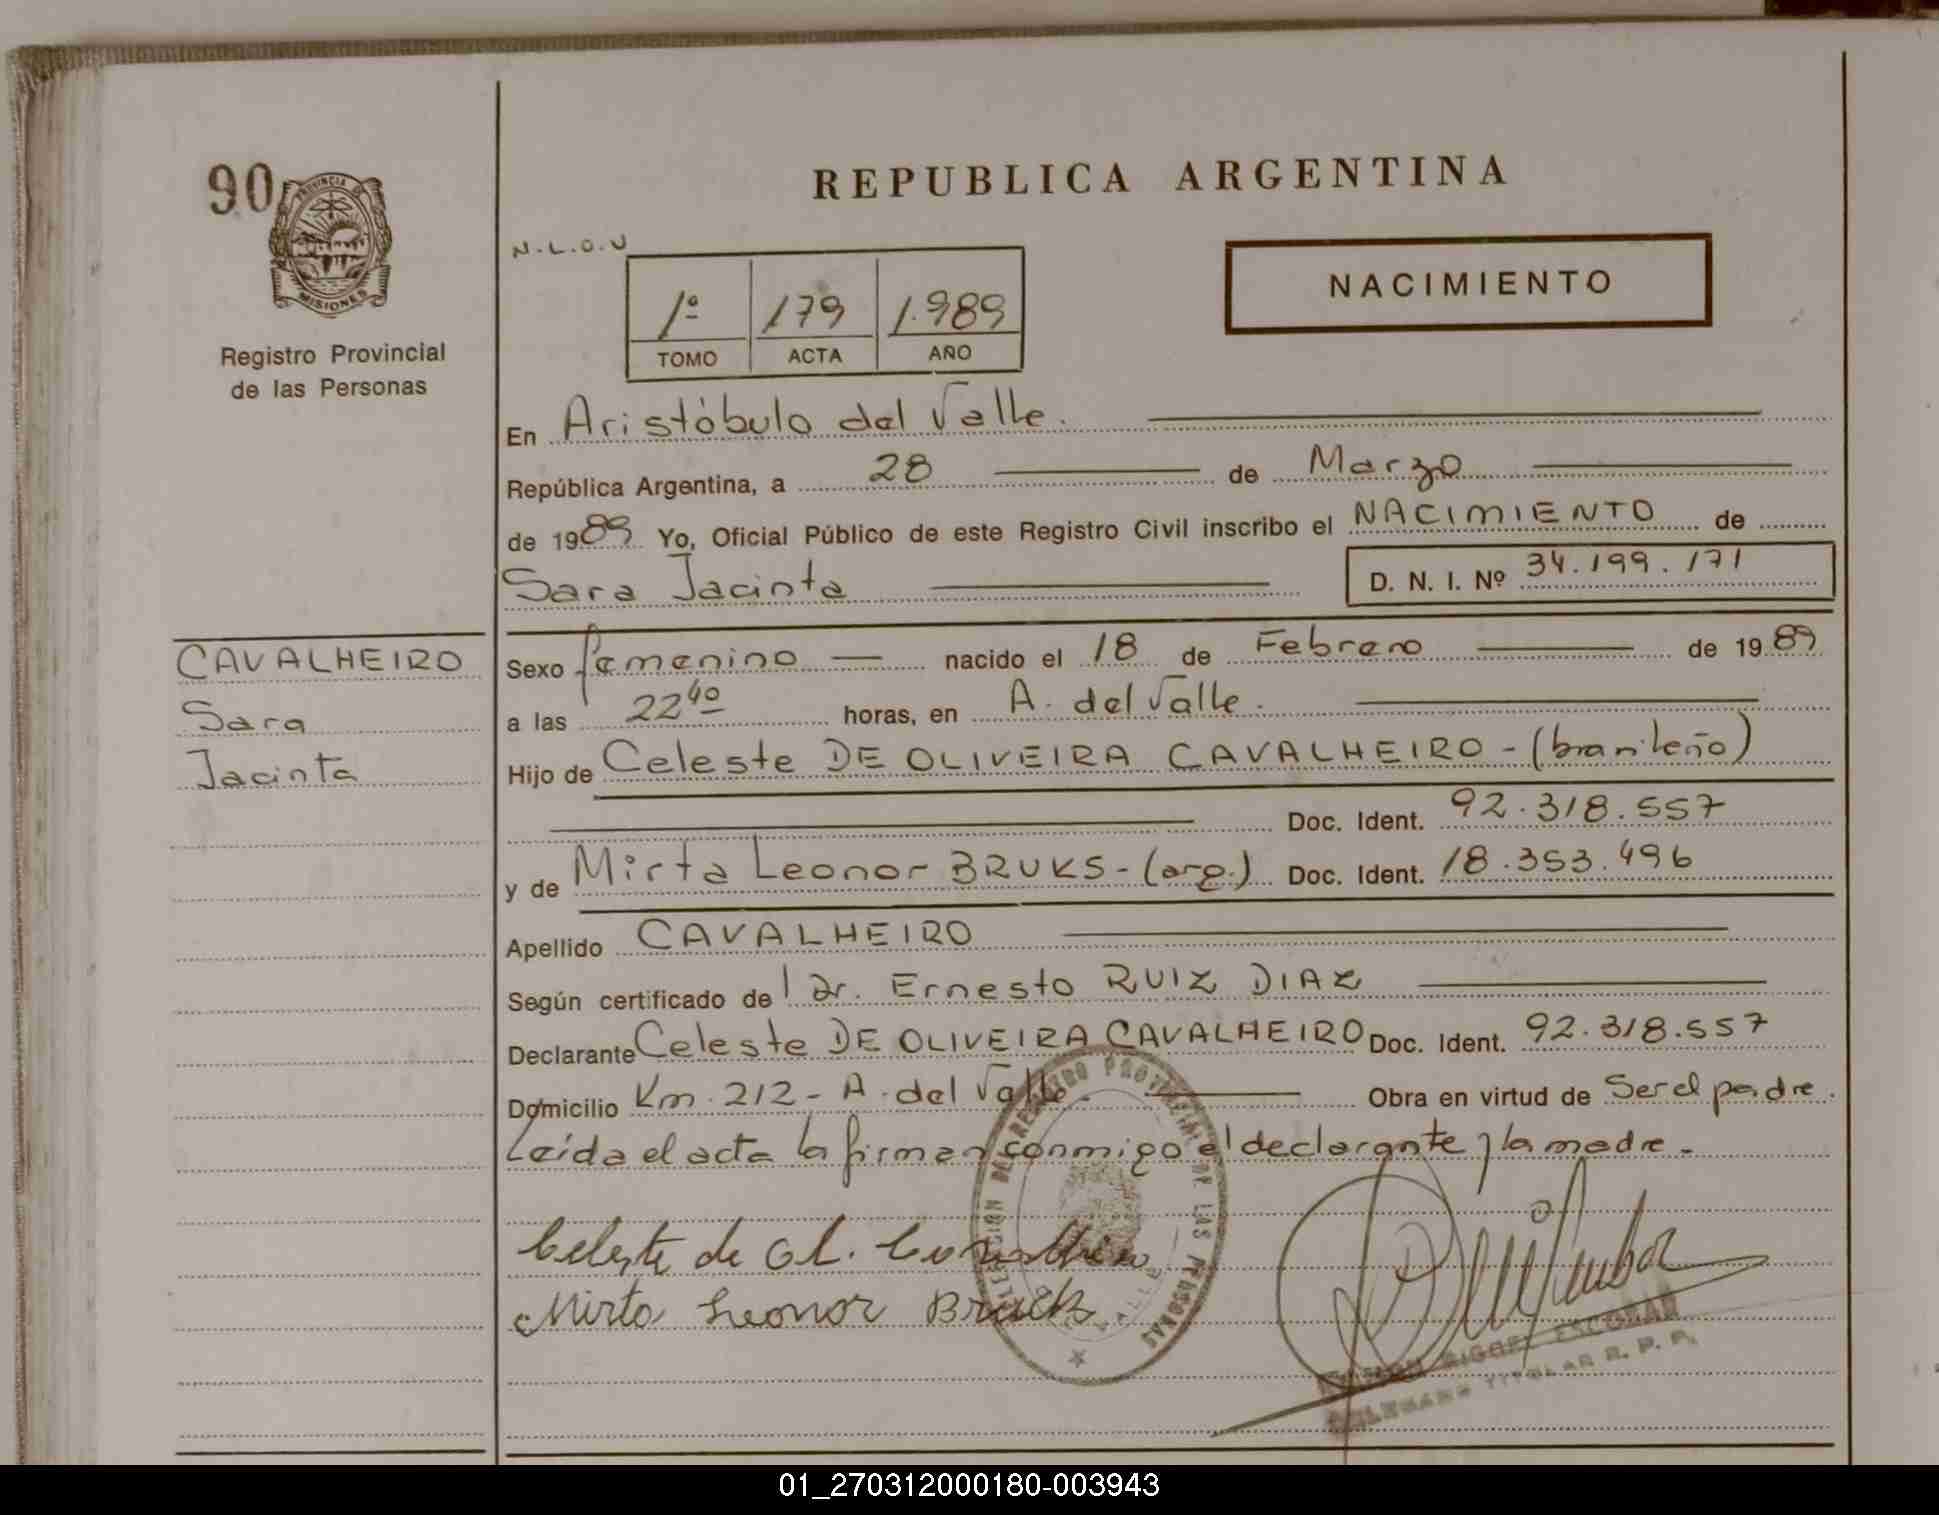 90
PROVINCIA DE
MISIONES
Registro Provincial
de las Personas
REPUBLICA ARGENTINA
N.L.O.V
NACIMIENTO
1º 179 1.989
TOMO ACTA AÑO
En Aristóbulo del Valle.
República Argentina, a 28 de Marzo
de 1989 Yo, Oficial Público de este Registro Civil inscribo el NACIMIENTO de
Sara Jacinta D. N. I. Nº 34.199.171
CAVALHEIRO
Sara
Jacinta
Sexo femenino nacido el 18 de Febrero de 1989
a las 22 40 horas, en A. del Valle.
Hijo de Celeste DE OLIVEIRA CAVALHEIRO - (brasileño)
Doc. Ident. 92.318.557
y de Mirta Leonor BRUKS - (arg.) Doc. Ident. 18.353.496
Apellido CAVALHEIRO
Según certificado de l Dr. Ernesto RUIZ DIAZ
Declarante Celeste DE OLIVEIRA CAVALHEIRO Doc. Ident. 92.318.557
Domicilio Km. 212 - A. del Valle. Obra en virtud de Ser el padre.
Leída el acta la firman conmigo el declarante y la madre.
Celeste de Ol. Cavalheiro
Mirta Leonor Bruks
REGISTRO PROVINCIAL DE LAS PERSONAS
MIGUEL ESCOBAR
DELEGADO TITULAR R. P. P.
01_270312000180-003943